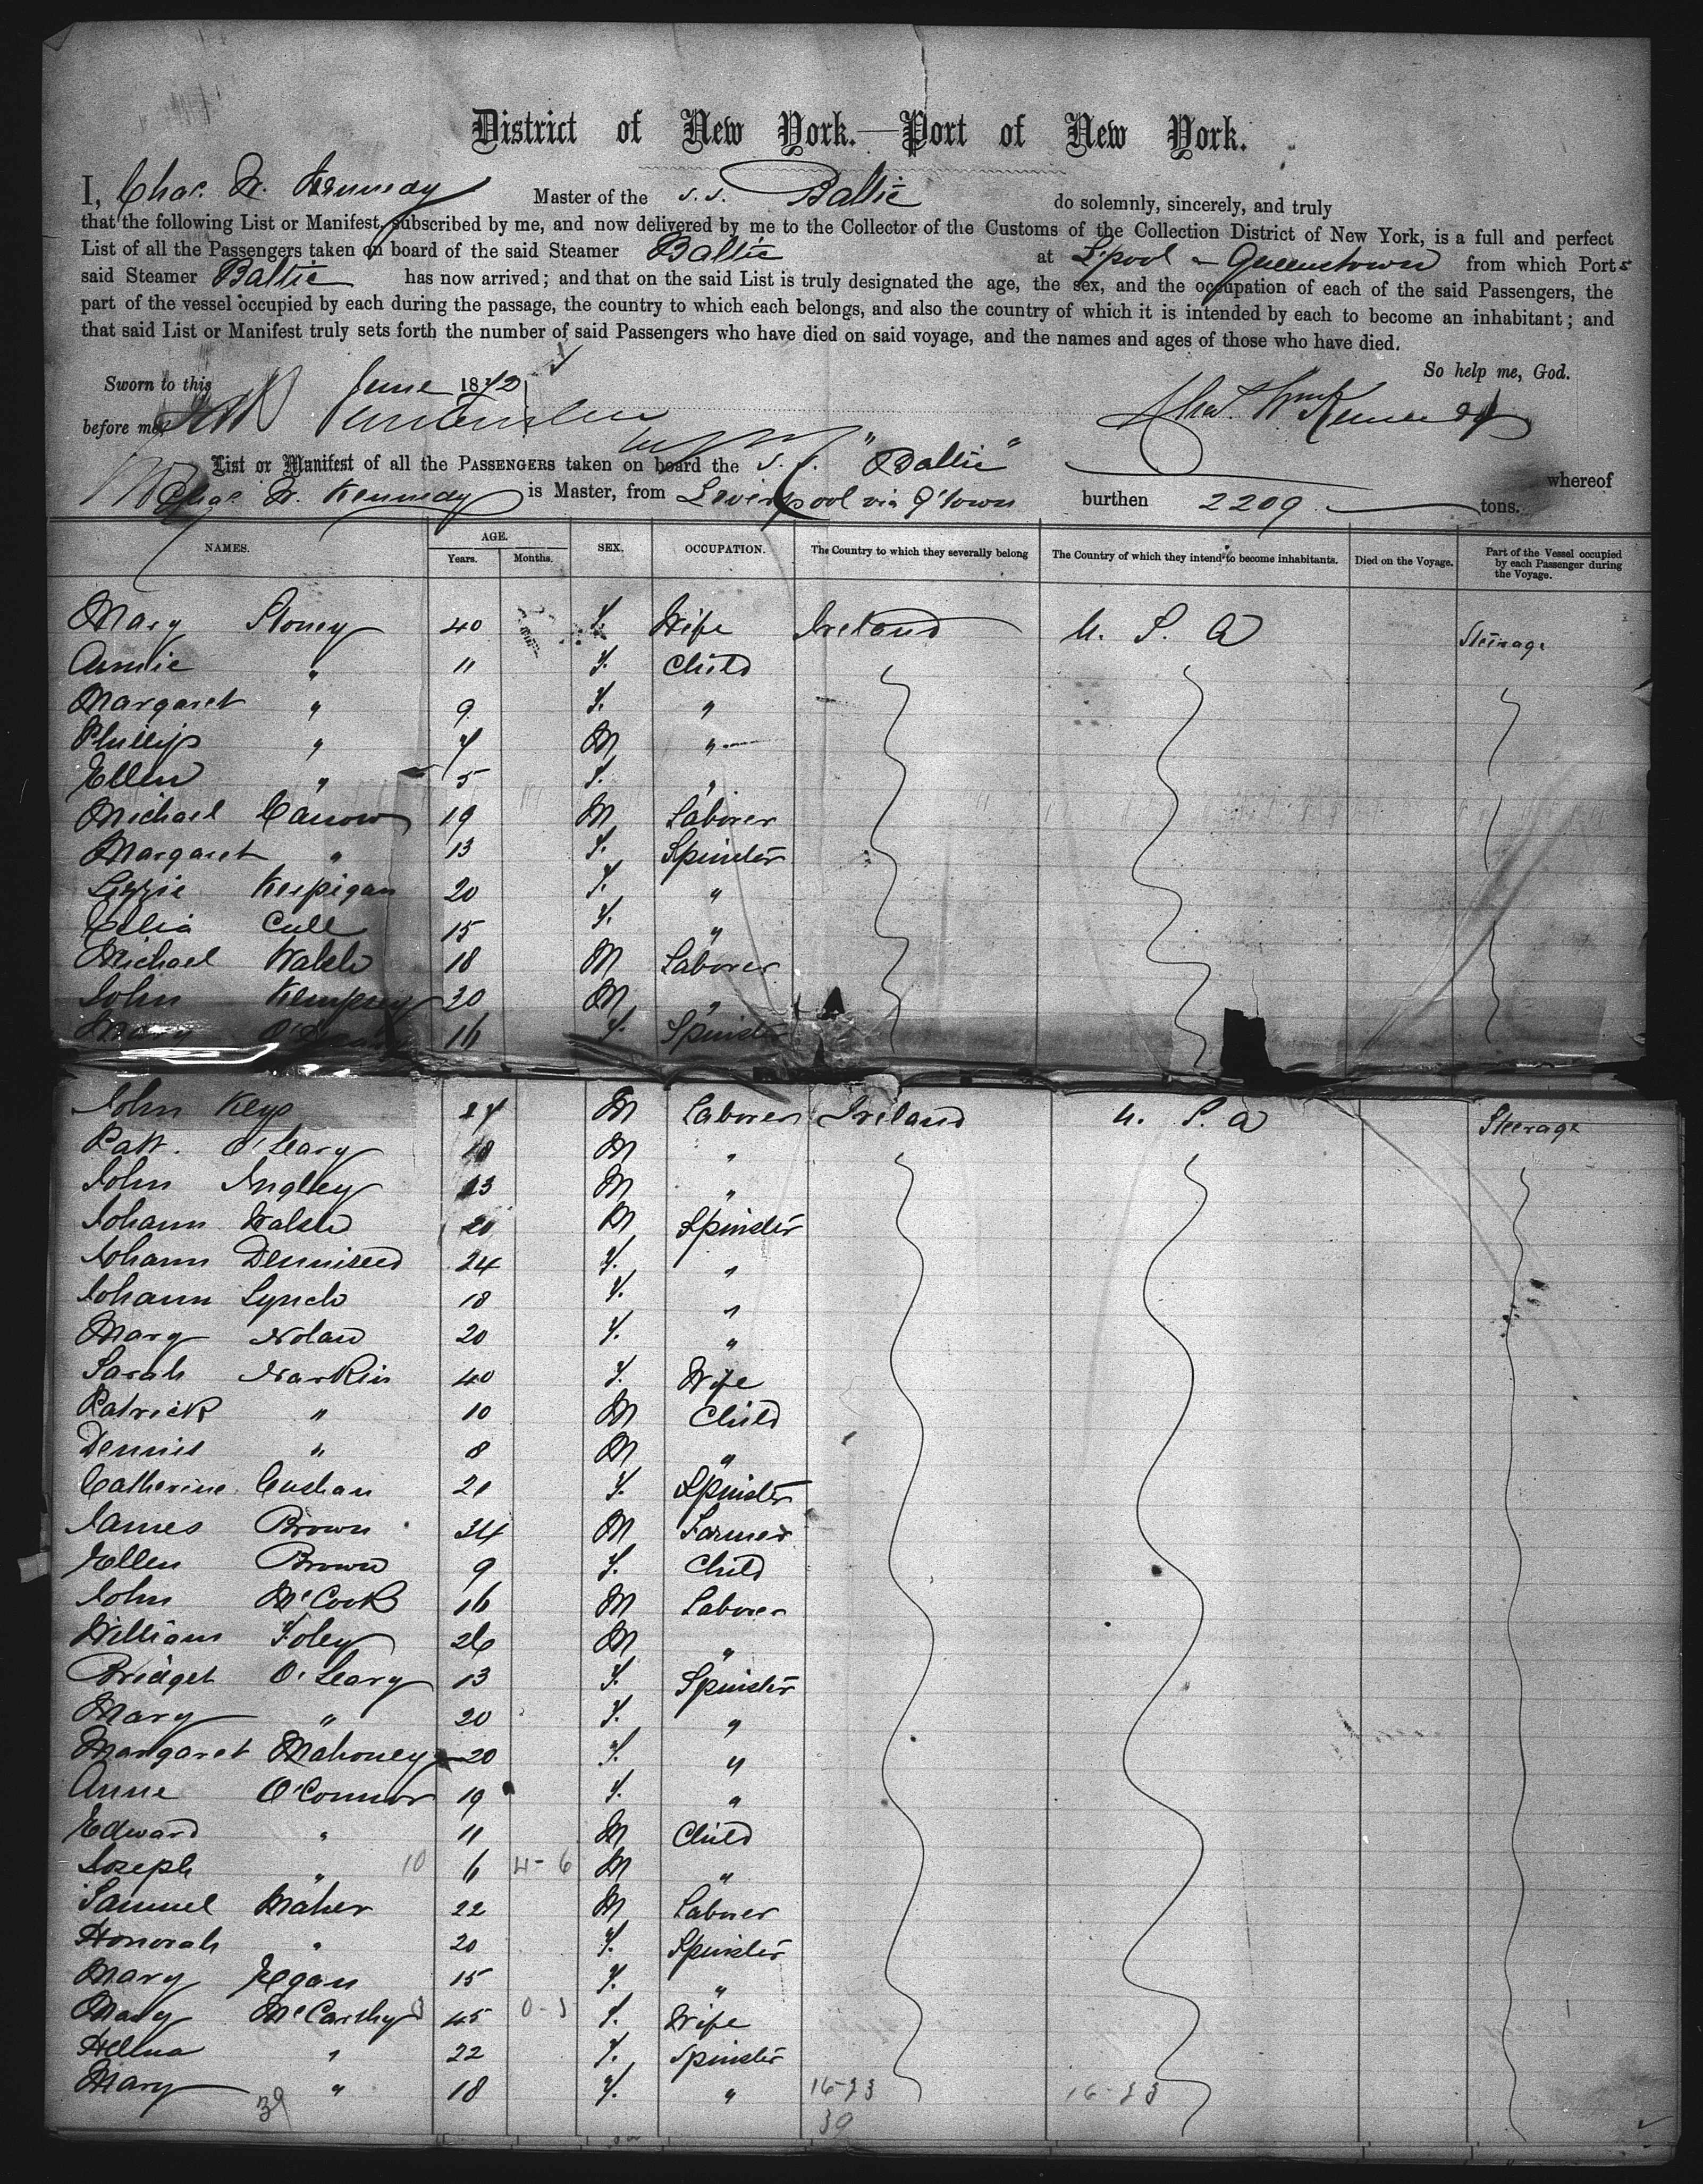 District of New York.—Port of New York.
I, Chas. W. Kennedy Master of the S.S. Baltic do solemnly, sincerely, and truly
that the following List or Manifest, subscribed by me, and now delivered by me to the Collector of the Customs of the Collection District of New York, is a full and perfect
List of all the Passengers taken on board of the said Steamer Baltic at L'pool & Queenstown from which Ports
said Steamer Baltic has now arrived; and that on the said List is truly designated the age, the sex, and the occupation of each of the said Passengers, the
part of the vessel occupied by each during the passage, the country to which each belongs, and also the country of which it is intended by each to become an inhabitant; and
that said List or Manifest truly sets forth the number of said Passengers who have died on said voyage, and the names and ages of those who have died.
So help me, God.
Sworn to this June 1872
before me Chas. Wm. Kennedy
List or Manifest of all the PASSENGERS taken on board the S.S. "Baltic" whereof
Chas. W. Kennedy is Master, from Liverpool via Q'town burthen 2209 tons.
NAMES. AGE. Years. Months. SEX. OCCUPATION. The Country to which they severally belong The Country of which they intend to become inhabitants. Died on the Voyage. Part of the Vessel occupied by each Passenger during the Voyage.
Mary Stoney 40 F. Wife Ireland U. S. A Steerage
Annie " 11 F. Child
Margaret " 9 F. "
Phillip " 7 M "
Ellen " 5 F. "
Michael 19 M Laborer
Margaret " 13 F. Spinster
Lizzie 20 F. "
Celia Cull 15 F. "
Michael Walsh 18 M Laborer
John Kempsey 20 M "
Mary 16 F. Spinster
John Keys 24 M Laborer Ireland U. S. A Steerage
Patk. O'Leary 18 M "
John Ingley 23 M "
Johann Walsh 20 M Spinster
Johann 24 F. "
Johann Lynch 18 F. "
Mary Nolan 20 F. "
Sarah Narkin 40 F. Wife
Patrick " 10 M Child
Dennis " 8 M "
Catherine Cushan 21 F. Spinster
James Brown 34 M Farmer
Ellen Brown 9 F. Child
John McCook 16 M Laborer
William Foley 26 M "
Bridget O'Leary 13 F. Spinster
Mary " 20 F. "
Margaret Mahoney 20 F. "
Anne O'Connor 19 F. "
Edward " 11 M Child
Joseph " 10 6 4-6 M "
Samuel Maher 22 M Laborer
Honorah " 20 F. Spinster
Mary Egan 15 F. "
Mary McCarthy 45 F. Wife
Helena " 22 F. Spinster
Mary " 18 F. " 16-23 16-23
39 39